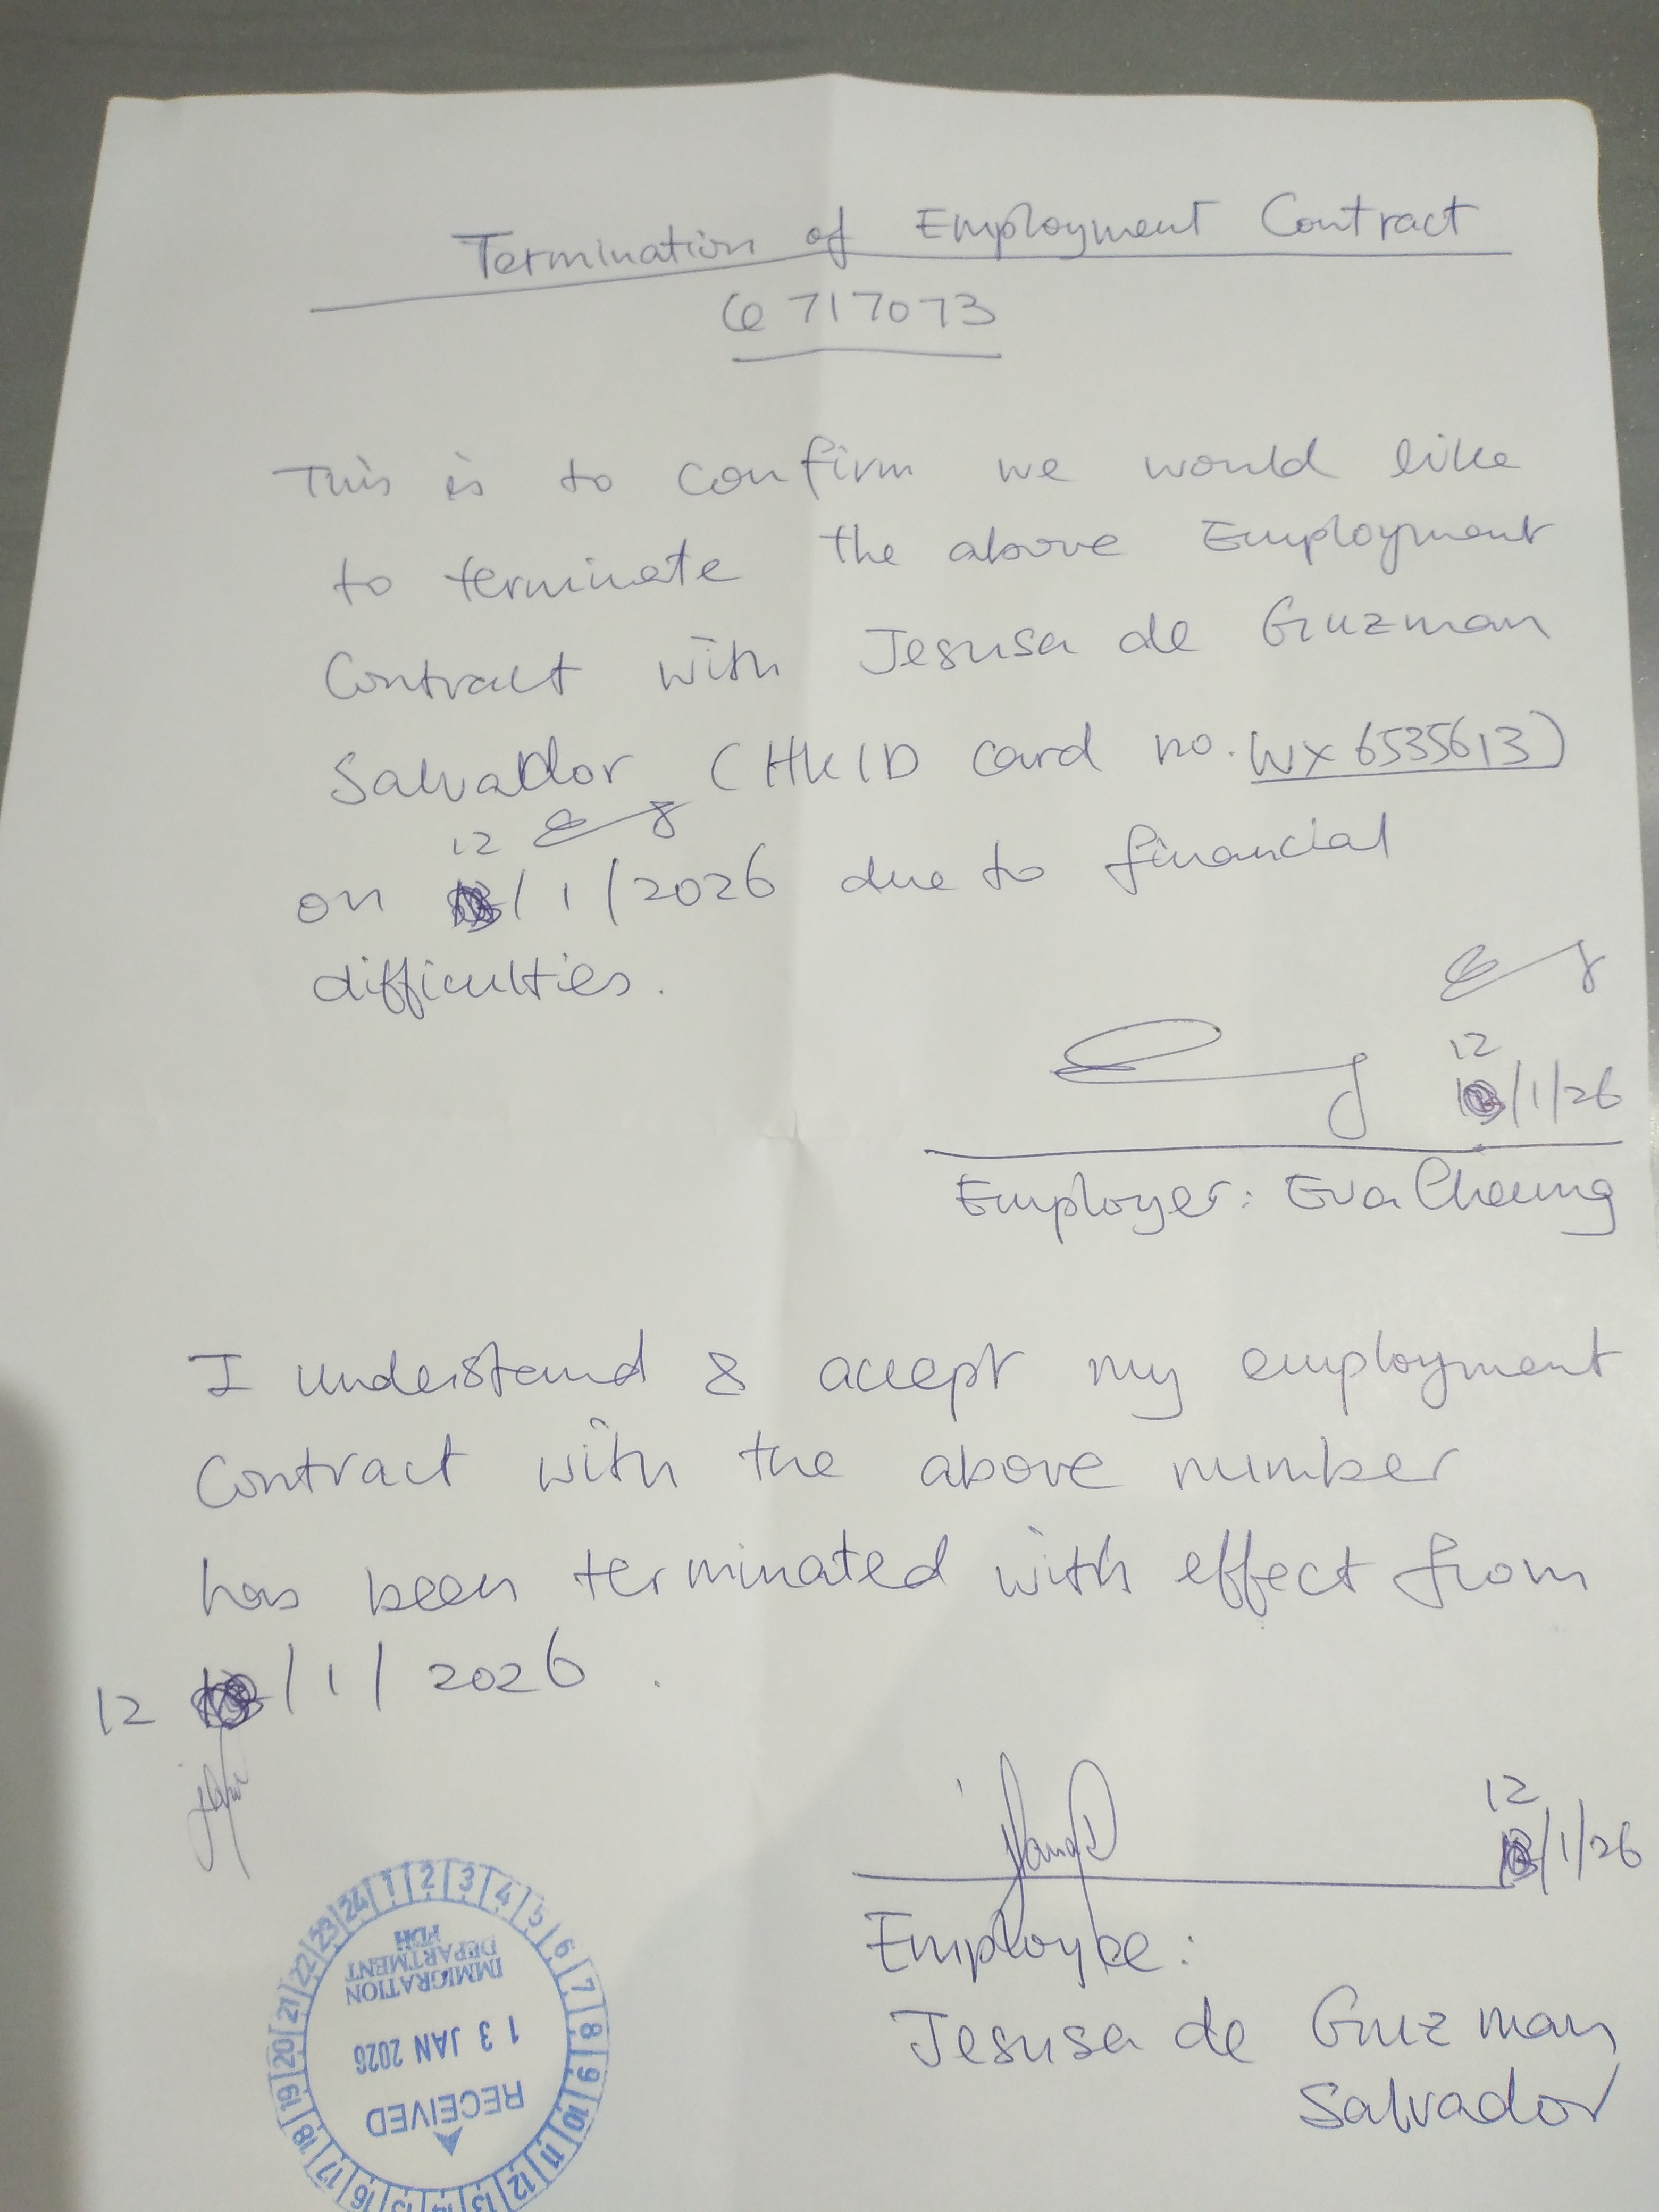 Termination of Employment Contract
6717073
This is to confirm we would like
to terminate the above Employment
Contract with Jesusa de Guzman
Salvador (HKID card no. WX6535613)
12
on /1/2026 due to financial
difficulties.
12
/1/26
Employer: Eva Cheung
I understand & accept my employment
Contract with the above number
has been terminated with effect from
12 /1/2026.
12
/1/26
Employee:
Jesusa de Guzman
Salvador
IMMIGRATION
DEPARTMENT
FDH
13 JAN 2026
RECEIVED
1 2 3 4 5 6 7 8 9 10 11 12 13 14 15 16 17 18 19 20 21 22 23 24